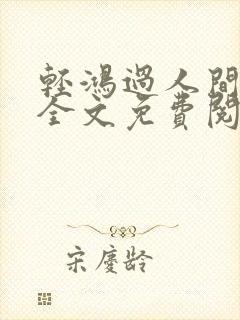 輕鴻過人間
全文免費閱
宋慶齡